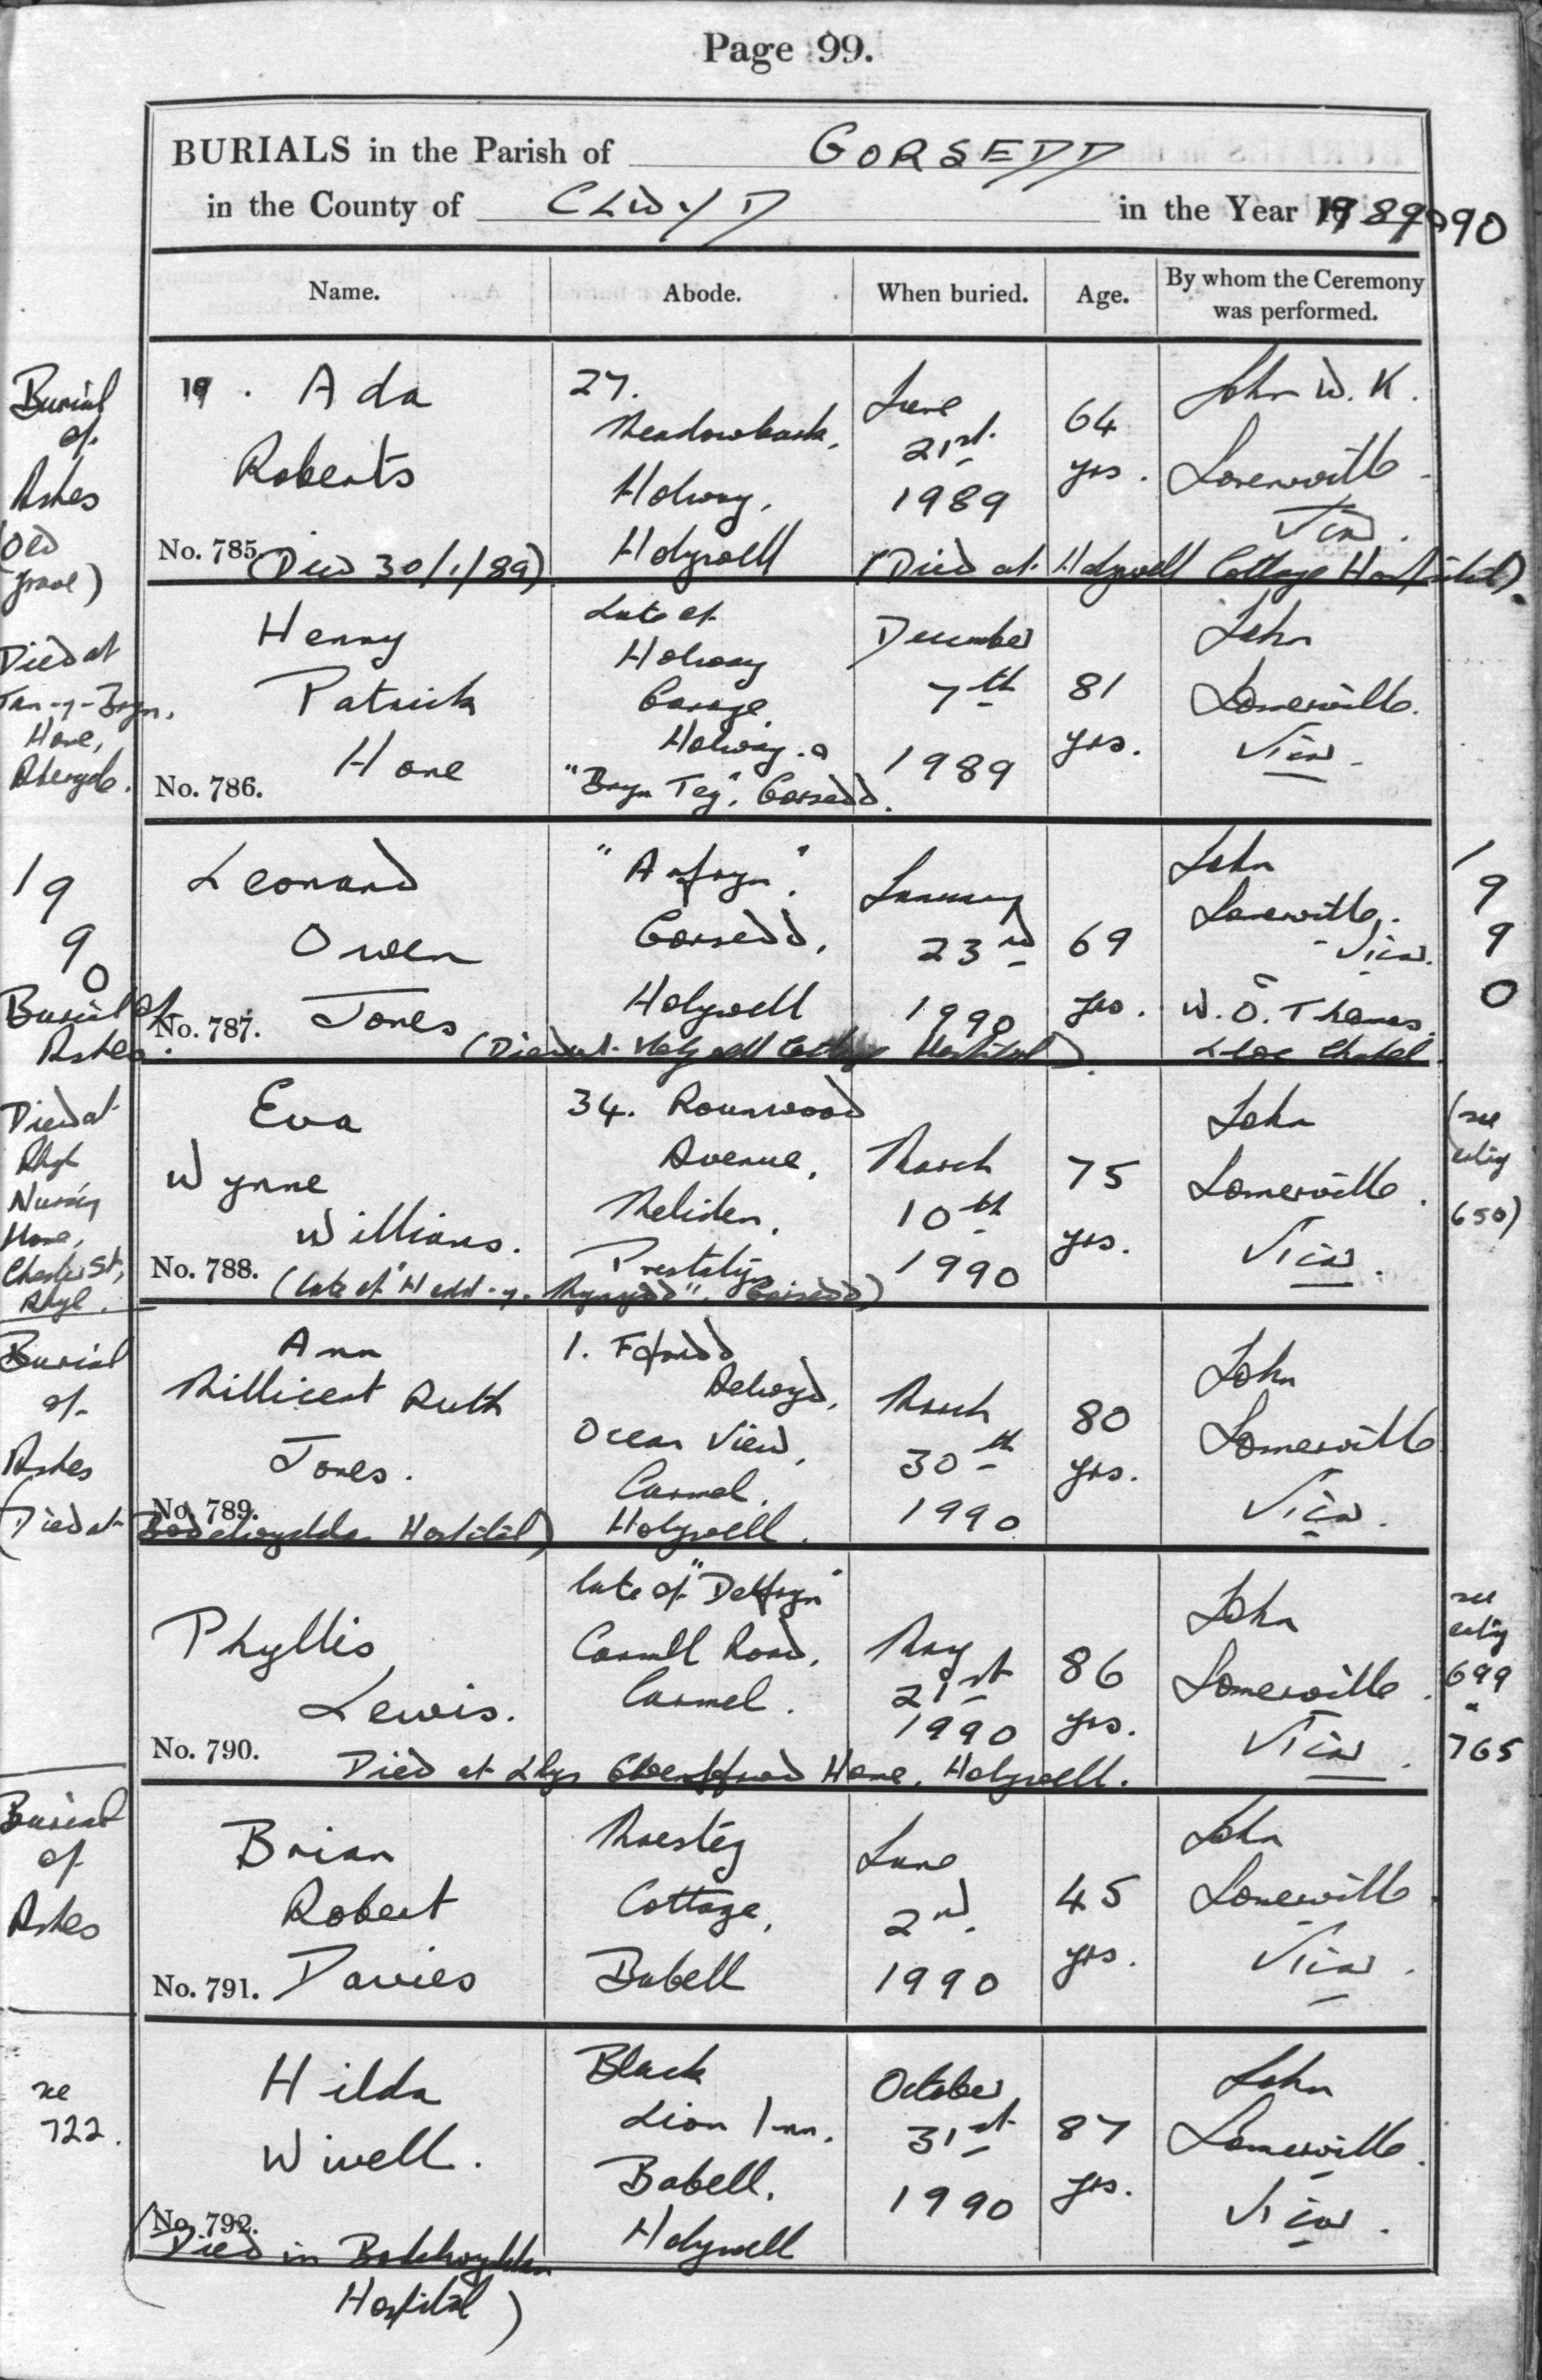 Page 99.
BURIALS in the Parish of GORSEDD
in the County of CLWYD in the Year 1989 & 90
Name. Abode. When buried. Age. By whom the Ceremony was performed.
Burial of Ashes (Old grave)
19 . Ada
Roberts
No. 785. (Died 30/1/89)
27.
Meadowbank,
Holway,
Holywell
June
21st
1989
64
yrs.
John W. K.
Somerville
Vicar.
(Died at Holywell Cottage Hospital).
Died at
Tan-y-Bryn,
Home,
Abergele.
Henry
Patrick
Hone
No. 786.
Late of
Holway
Garage,
Holway. &
"Bryn Teg", Gorsedd.
December
7th
1989
81
yrs.
John
Somerville.
Vicar.
1990
Burial of
Ashes.
Leonard
Owen
No. 787. Jones
"Arfryn".
Gorsedd,
Holywell
January
23rd
1990
69
yrs.
John
Somerville.
- Vicar.
W. O. Thomas.
Lloc Chapel
(Died at Holywell Cottage Hospital).
1990
Died at
Rhyl
Nursing
Home,
Chester St,
Rhyl.
Eva
Wynne
Williams.
No. 788.
34.
Avenue,
Meliden,
Prestatyn
March
10th
1990
75
yrs.
John
Somerville.
Vicar.
(see
entry
650)
(late of "Hedd-y-Mynydd", Gorsedd)
Burial
of
Ashes
Ann
Millicent Ruth
Jones.
No. 789.
1. Ffordd
Aelwyd,
Ocean View,
Carmel.
Holywell.
March
30th
1990
80
yrs.
John
Somerville
Vicar.
(Died at Bodelwyddan Hospital)
Phyllis
Lewis.
No. 790.
late of "Delfryn"
Carmel Road,
Carmel.
May
21st
1990
86
yrs.
John
Somerville.
Vicar.
see
entry
699
765
Died at Llys Home, Holywell.
Burial
of
Ashes
Brian
Robert
No. 791. Davies
Maesteg
Cottage,
Babell
June
2nd
1990
45
yrs.
John
Somerville.
Vicar.
see
722.
Hilda
Wivell.
No. 792.
Black
Lion Inn,
Babell,
Holywell
October
31st
1990
87
yrs.
John
Somerville.
Vicar.
(Died in Bodelwyddan
Hospital)